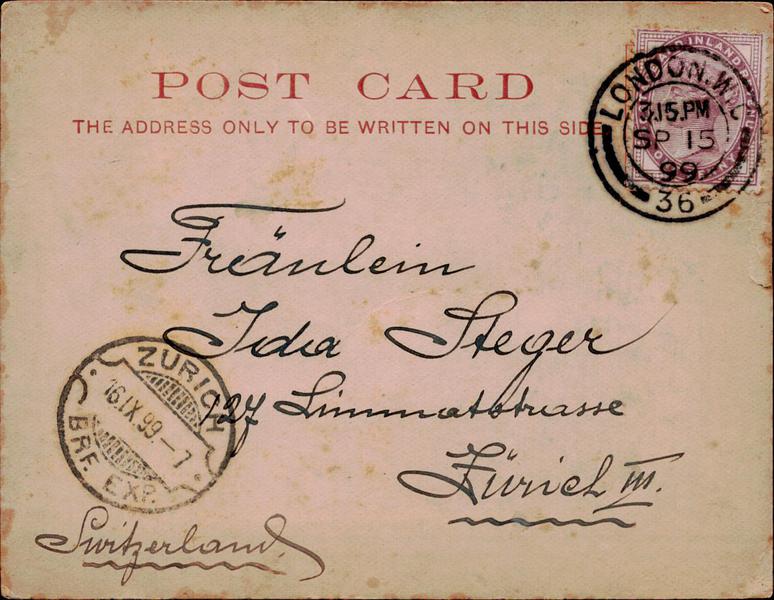 POST CARD
THE ADDRESS ONLY TO BE WRITTEN ON THIS SIDE
LONDON. W.C
3.15.PM
SP 15
99
36
Fräulein
Ida Steger
127 Limmatstrasse
Zürich III.
Switzerland.
ZÜRICH
16.IX.99-7
BRF. EXP.